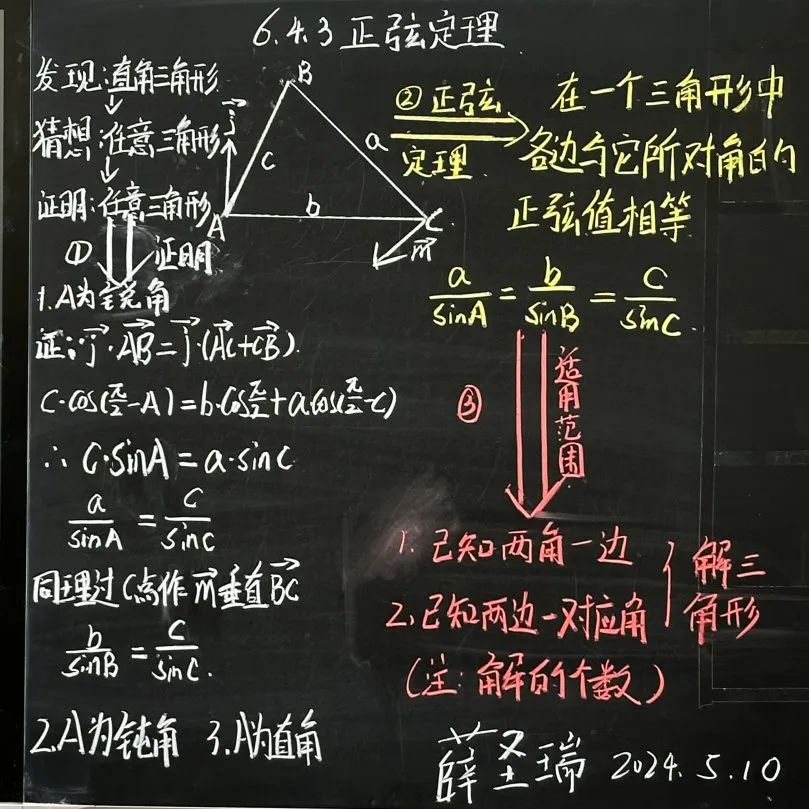 6.4.3 正弦定理
发现:直角三角形
↓
猜想:任意三角形
↓
证明:任意三角形
① 证明
1.A为锐角
证:∵j·AB=j·(AC+CB).
c·cos(π/2-A)=b·cosπ/2+a·cos(π/2-C)
∴ C·sinA=a·sinC
a/sinA=c/sinC
同理过C点作m垂直BC
b/sinB=c/sinC.
2.A为钝角 3.A为直角
j
B
c
a
A
b
C
m
②正弦
定理
在一个三角形中
各边与它所对角的
正弦值相等
a/sinA=b/sinB=c/sinC.
③
适用范围
1.已知两角一边
2.已知两边一对应角
解三
角形
(注:解的个数)
薛圣瑞 2024.5.10